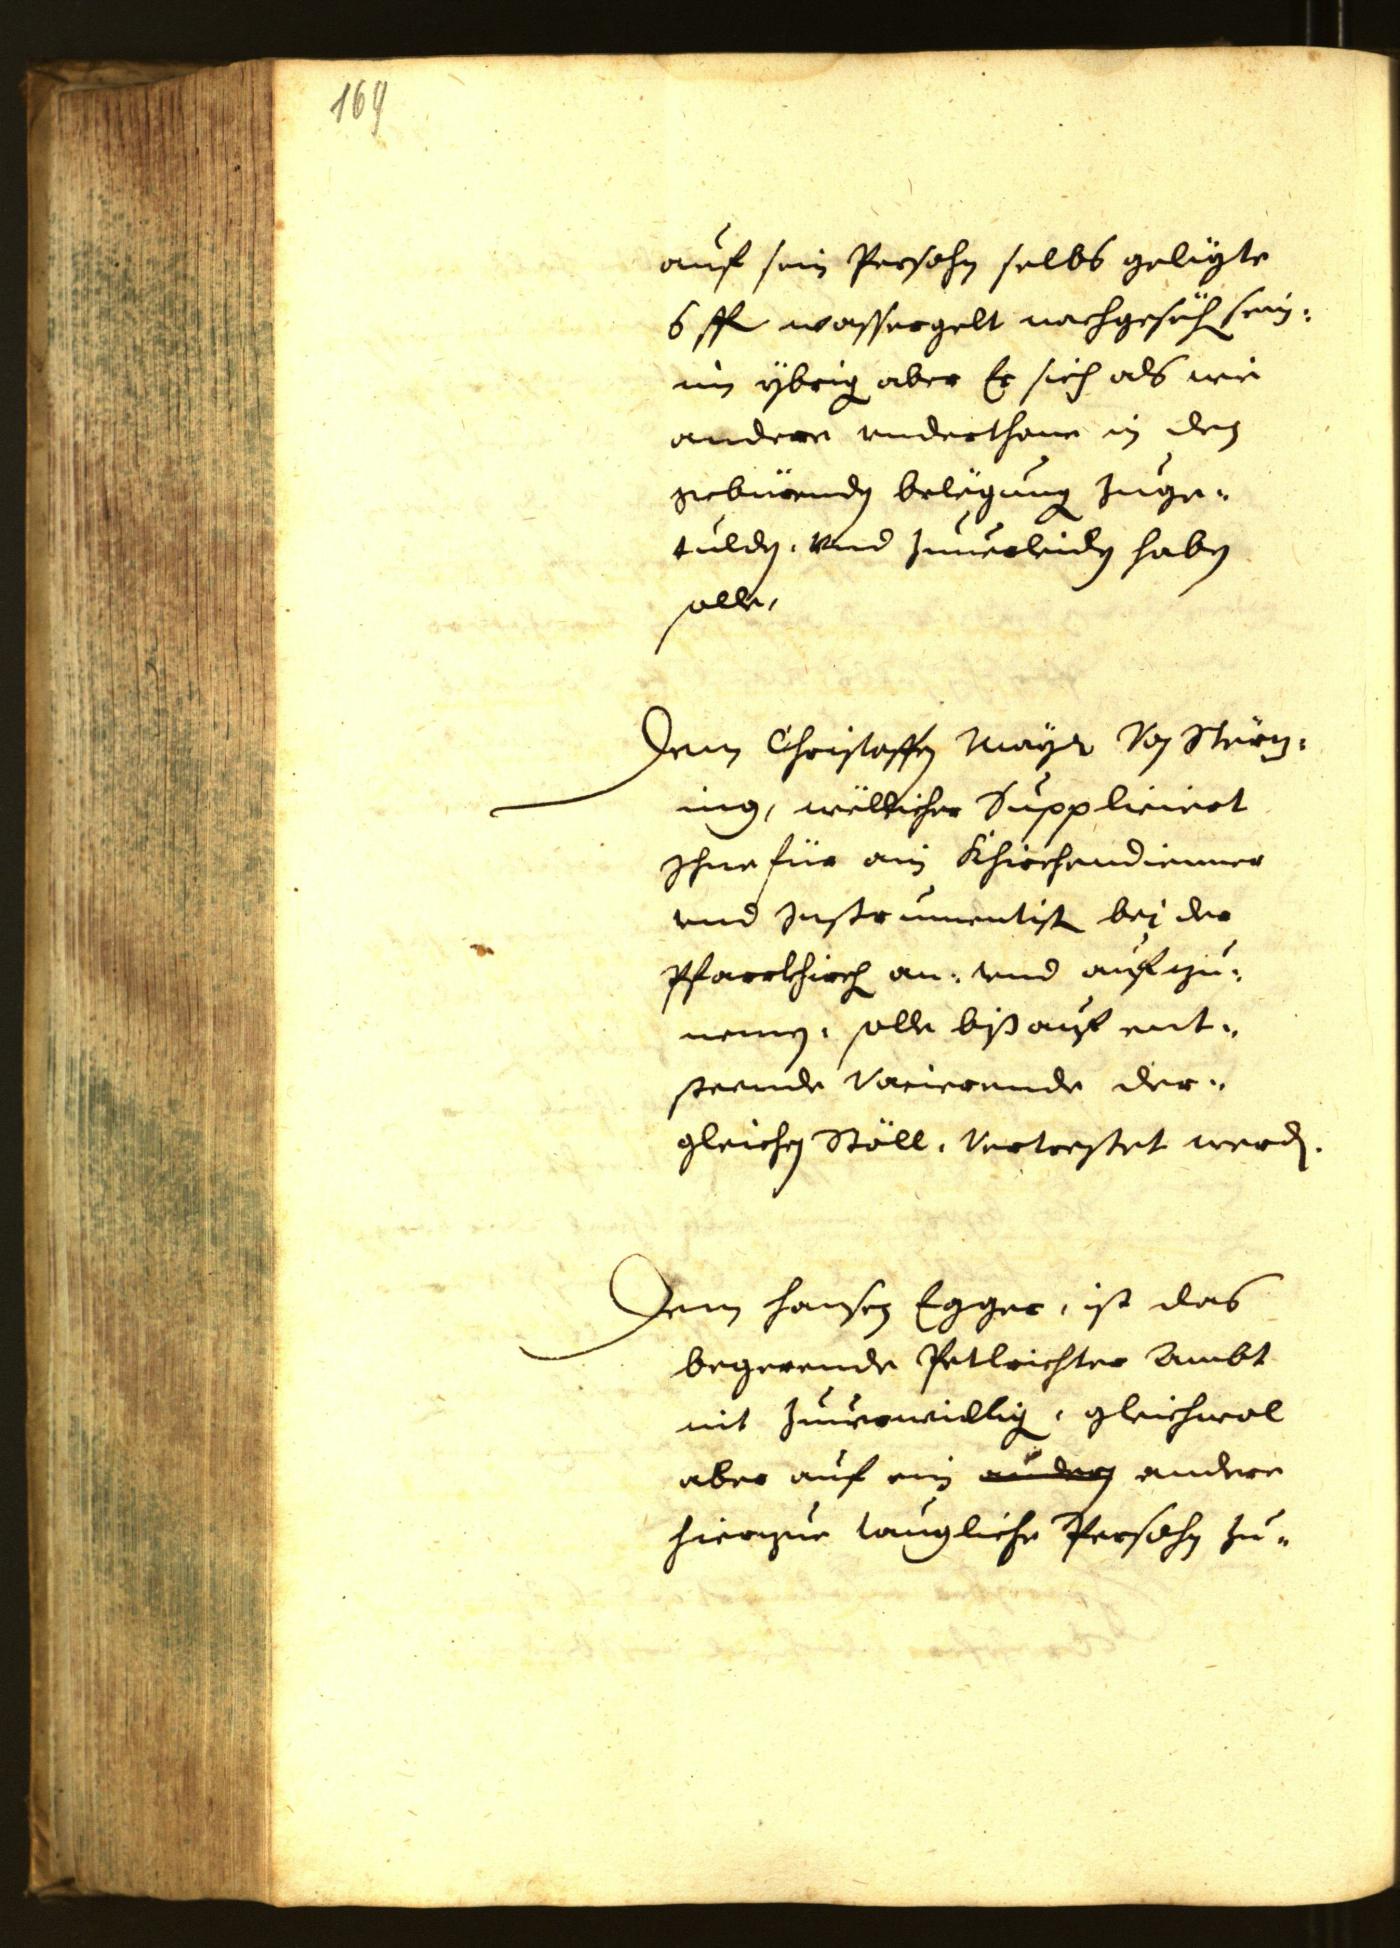 169
auf sein Persohn selbs gelegte
6 ff wassergelt nachgesech sein:
im ybrig aber Er sich als wie
andere underthone in den
gebürendn belegung zuge-
tuldn. Und zuuerleidn habn
solle,
Dem Christoffen Mayr Von Störz-
ing, wellicher Suppliciert
Ihne für ain Khirchendienner
und Instrumentist bei der
Pfarrkhirch an: und aufzu-
nemen. solle biß auf ent-
steende Vacierende der-
gleichen Stöll. Vertrestet werdn.
Dem Hansen Egger, ist das
begerende Petlrichter Ambt
nit zuuerwillig, gleichwol
aber auf ein andern andere
hierzue taugliche Persohn zu-